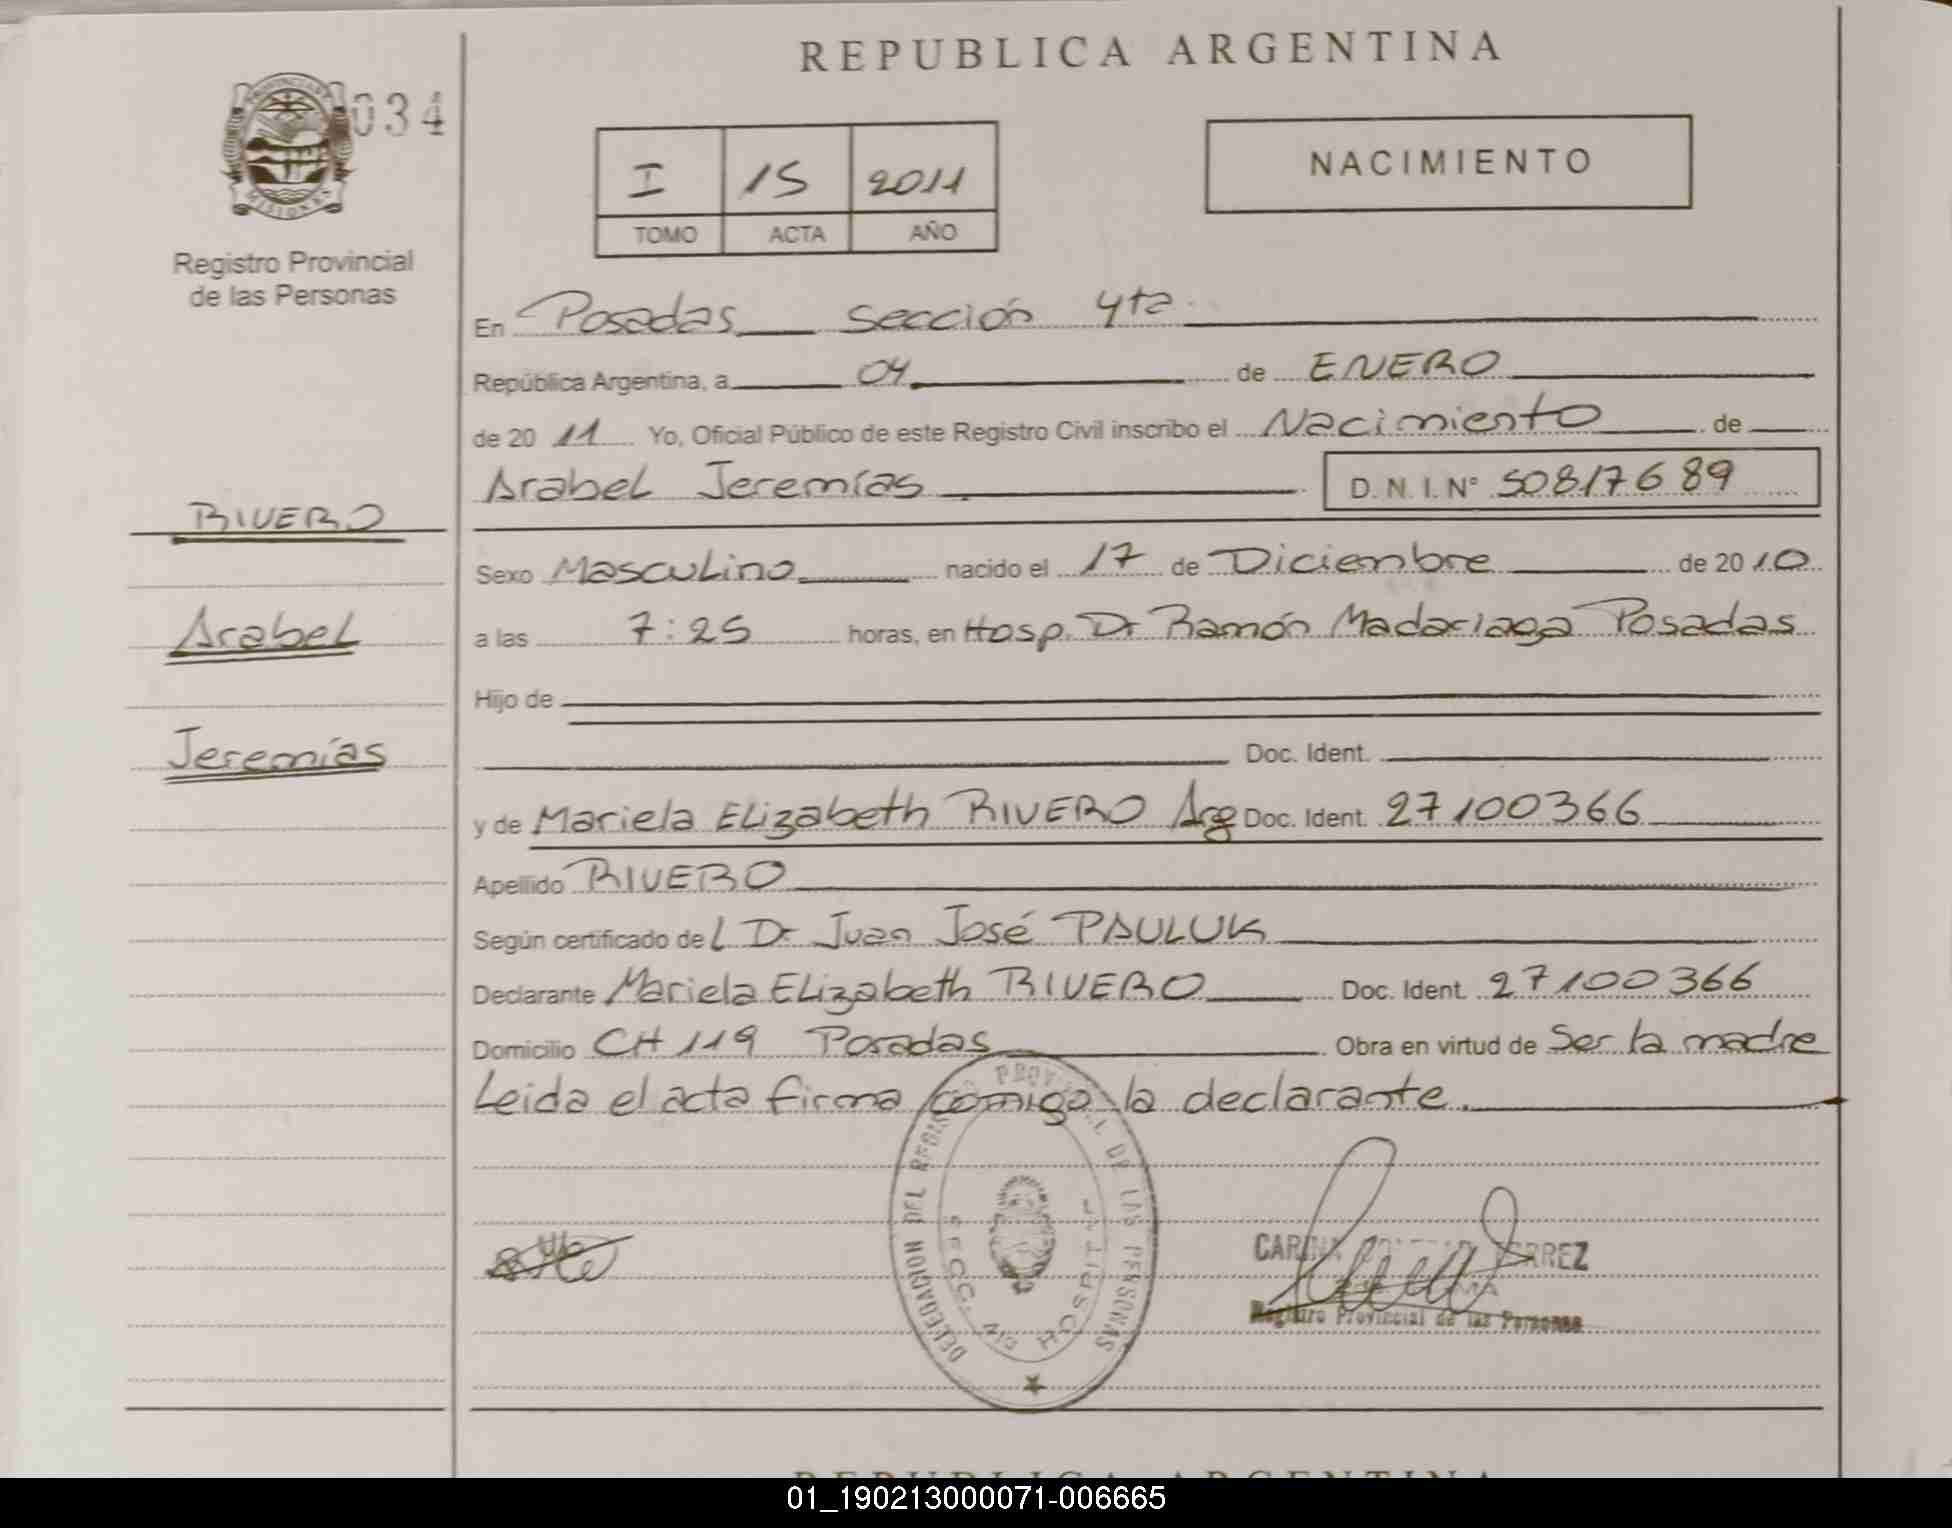 REPUBLICA ARGENTINA
034
NACIMIENTO
I 15 2011
TOMO ACTA AÑO
MISIONES
Registro Provincial
de las Personas
En Posadas Sección 4ta
República Argentina, a 04 de ENERO
de 20 11 Yo, Oficial Público de este Registro Civil inscribo el Nacimiento de
Arabel Jeremías D. N. I. Nº 50817689
RIVERO
Arabel
Jeremías
Sexo Masculino nacido el 17 de Diciembre de 2010
a las 7:25 horas, en Hosp. Dr Ramón Madariaga Posadas
Hijo de
Doc. Ident.
y de Mariela Elizabeth RIVERO Arg Doc. Ident. 27100366
Apellido RIVERO
Según certificado del Dr Juan José PAULUK
Declarante Mariela Elizabeth RIVERO Doc. Ident. 27100366
Domicilio CH 119 Posadas Obra en virtud de Ser la madre
Leida el acta firma comigo la declarante.
DELEGACION DEL REGISTRO PROVINCIAL DE LAS PERSONAS
SECC. HOSPITAL
CARINA
Registro Provincial de las Personas
REPUBLICA ARGENTINA
01_190213000071-006665